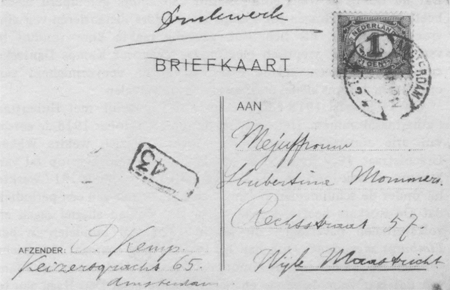 Drukwerk
NEDERLAND
1
CENT
AMSTERDAM
BRIEFKAART
AAN
Mejuffrouw
Hubertine Mommers.
Rechtstraat 57.
Wyk Maastricht
43
AFZENDER: P. Kemp.
Keizersgracht 65.
Amsterdam